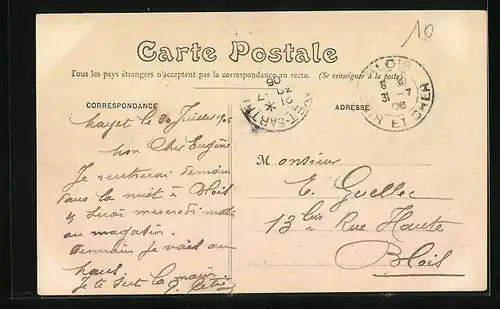 10
Carte Postale
Tous les pays étrangers n'acceptent pas la correspondance au recto. (Se renseigner à la poste
CORRESPONDANCE
ADRESSE
MAYET-SARTHE
21
30 -7
06
BLOIS
31 -7
06
LOIR ET CHER
Mayet le 30 Juillet 906
Mon Cher Eugène
Je rentrerai demain
dans la nuit à Blois
et serai mercredi mat
au magasin.
Demain je vais au
Mans.
Je te sert la main.
Monsieur
E. Guellec
13 bis Rue Haute
Blois